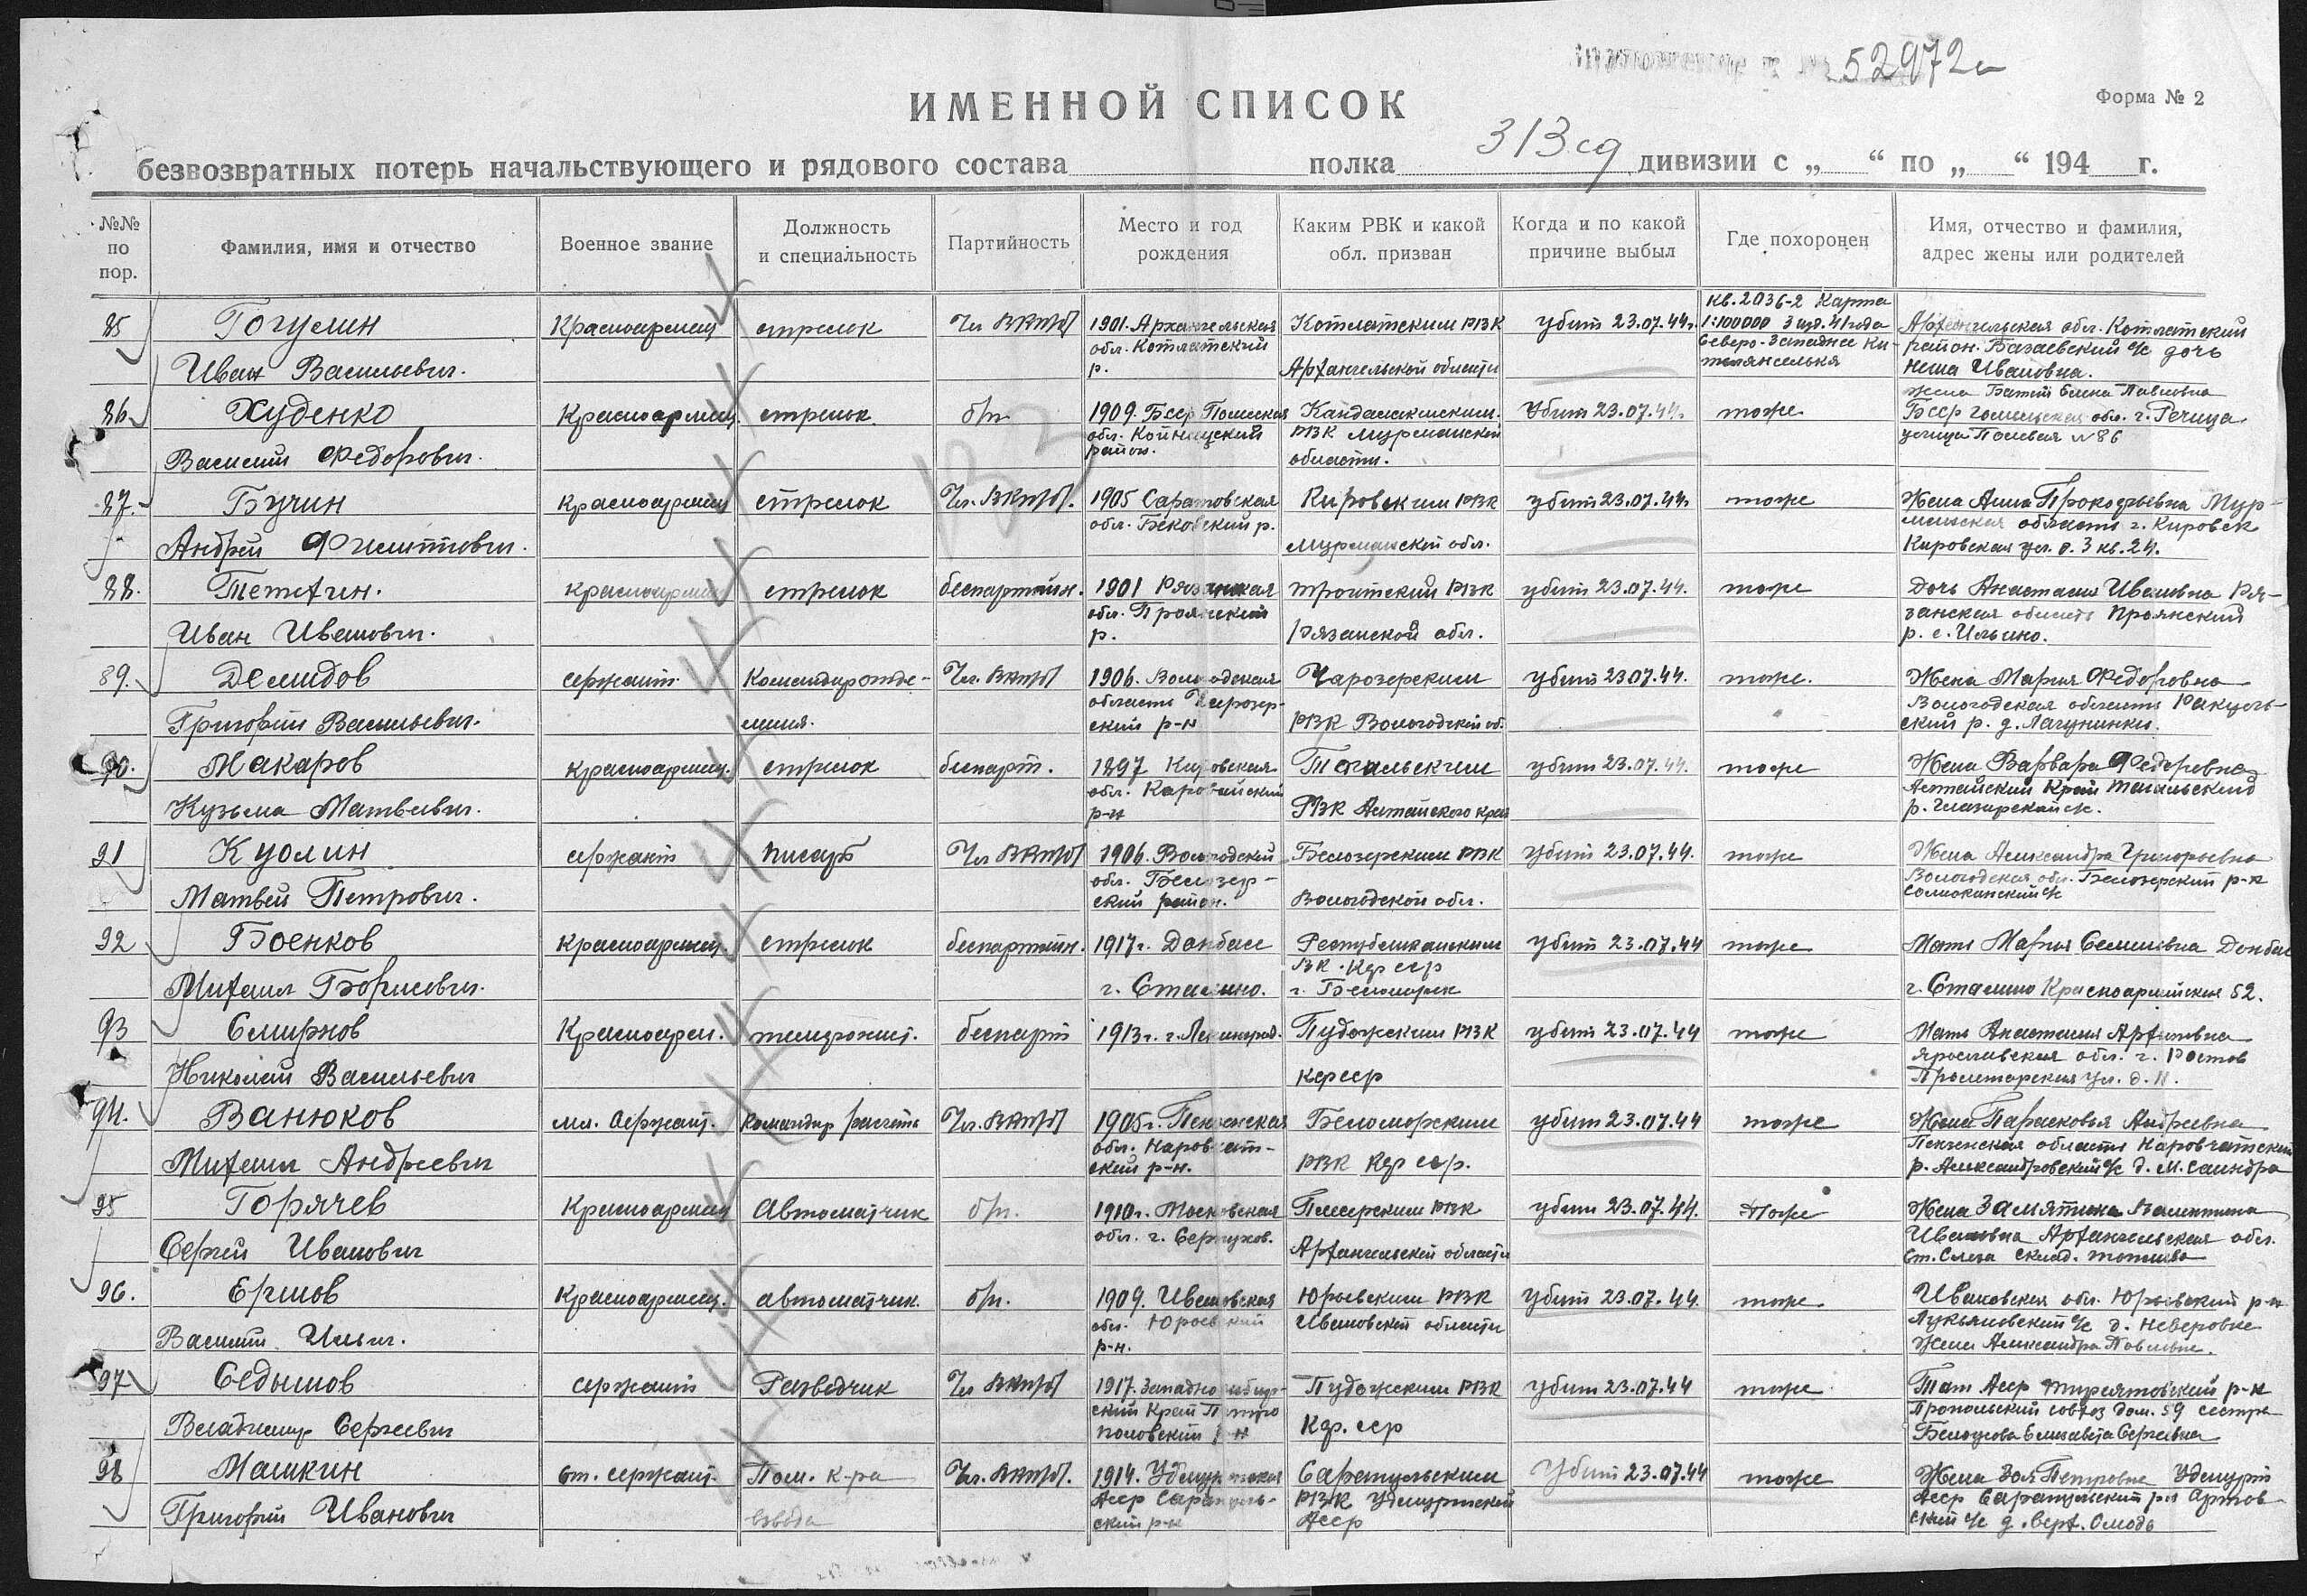 52972
ИМЕННОЙ СПИСОК
Форма № 2
безвозвратных потерь начальствующего и рядового состава полка 313 сд дивизии с „ “ по „ “ 194 г.
№№ по пор.
Фамилия, имя и отчество
Военное звание
Должность и специальность
Партийность
Место и год рождения
Каким РВК и какой обл. призван
Когда и по какой причине выбыл
Где похоронен
Имя, отчество и фамилия, адрес жены или родителей
85 Гогулин Красноармеец стрелок Чл ВКП(б) 1901. Архангельская Котласским РВК убит 23.07.44г. кв. 2036-2 Карта
1:100000 3 изд. 41 года Архангельская обл. Котласский
обл. Котласский Северо-Западнее район
Иван Васильевич. р. Архангельской области дочь Ивановна.
86 Худенко Красноармеец стрелок б/п 1909. Бсср Полесская Кандалакшским убит 23.07.44г. тоже жена Елена Павловна
обл. район. РВК Мурманской Бсср Гомельская обл. г. Речица
Василий Федорович. области. улица Полевая № 86
87. Бучин Красноармеец стрелок Чл. ВКП(б). 1905 Саратовская Кировским РВК убит 23.07.44г. тоже Жена Анна Прокофьевна Мур-
обл. Бековский р. манская область г. Кировск
Андрей Мурманской обл. Кировская ул. д. 3 кв. 24.
88. Красноармеец стрелок беспартийн. 1901 Рязанская РВК убит 23.07.44. тоже дочь Анастасия Ивановна Ря-
обл. занская область
Иван Иванович. р. Рязанской обл. р. с. Ильино.
89. Демидов сержант Командир отде- Чл. ВКП(б) 1906. Вологодская Чарозерским убит 23.07.44. тоже. Жена Мария Федоровна
области Чарозер- Вологодская область
Григорий Васильевич. ления. ский р-н РВК Вологодской об. ский р. д.
90. Макаров красноармеец. стрелок беспарт. 1897 Кировская Тогульским убит 23.07.44. тоже Жена Варвара Федоровна
обл. Алтайский Край Тогульский
Кузьма Матвеевич. р-н РВК Алтайского края р.
91 Куолин сержант писарь Чл ВКП(б) 1906. Вологодский Белозерским РВК убит 23.07.44. тоже Жена Александра Григорьевна
обл. Белозер- Вологодская обл. Белозерский р-н
Матвей Петрович. ский район. Вологодской обл. с/с
92 Боенков красноармеец. стрелок беспартийн. 1917г. Донбасс Республиканским убит 23.07.44 тоже Мать Мария Донбас
ВК. Кф сср
Михаил Борисович. г. Сталино. г. Беломорск г. Сталино Красноармейская 52.
93 Смирнов Красноарм. беспарт 1913г. г. Ленинград. Пудожским РВК убит 23.07.44 тоже Мать Анастасия
Ярославская обл. г. Ростов
Николай Васильевич Кфсср Пролетарская ул. д. 11.
94. Ванюков мл. Сержант. Командир расчета Чл. ВКП(б) 1905г. Пензенская Беломорским убит 23.07.44 тоже Жена Парасковья Андреевна
обл. Наровчат- Пензенская область Наровчатский
Михаил Андреевич ский р-н. РВК Кф сср. р. Александровский с/с д.
95 Горячев Красноармеец Автоматчик б/п. 1910г. Московская Плесецким РВК убит 23.07.44. тоже Жена Замятина Валентина
обл. г. Серпухов. Ивановна Архангельская обл.
Сергей Иванович Архангельской области ст. склад. топлива
96. Ершов Красноармеец. автоматчик. б/п. 1909. Ивановская Юрьевским РВК убит 23.07.44. тоже Ивановская обл. Юрьевский р-н
обл. Юрьевский Ивановской области Лукьяновский с/с д. Неверовке
Василий Ильич. р-н. Жена Александра Павловне.
97 Седышов сержант Разведчик Чл ВКП(б) 1917. Западносибир- Пудожским РВК убит 23.07.44 тоже Тат Асср р-н
ский Край совхоз дом. 59 сестра
Владимир Сергеевич р-н Кф. сср Елизавета Сергеевна
98 Машкин ст. сержант. Пом. к-ра Чл. ВКП(б). 1914. Удмуртская Сарапульским Убит 23.07.44 тоже Жена Зоя Петровна Удмурт
Асср Сарапуль- РВК Удмуртской Асср Сарапульский р-н
Григорий Иванович взвода ский р-н Асср ский с/с д.